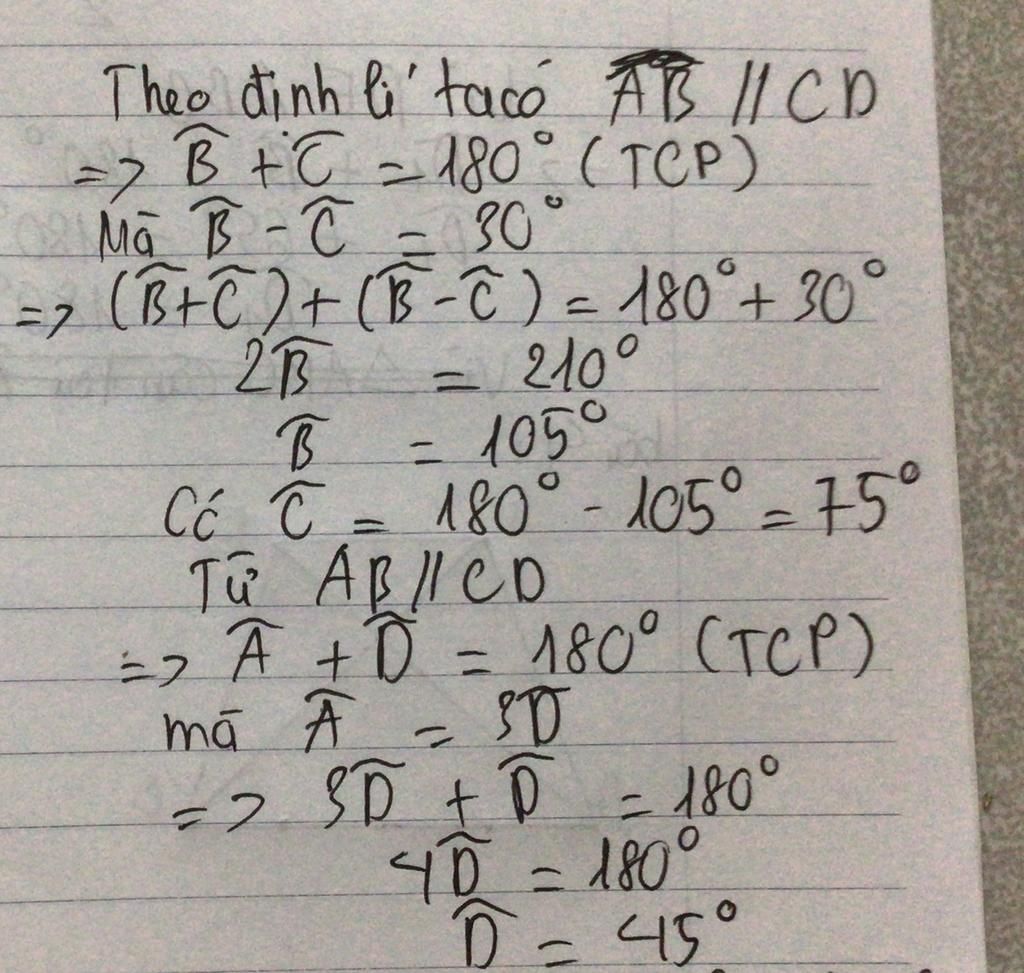 Theo định lí ta có AB // CD
=> B̂ + Ĉ = 180° (TCP)
Mà B̂ - Ĉ = 30°
=> (B̂+Ĉ)+(B̂-Ĉ) = 180°+ 30°
2B̂ = 210°
B̂ = 105°
Có Ĉ = 180° - 105° = 75°
Từ AB // CD
=> Â + D̂ = 180° (TCP)
mà Â = 3D̂
=> 3D̂ + D̂ = 180°
4D̂ = 180°
D̂ = 45°